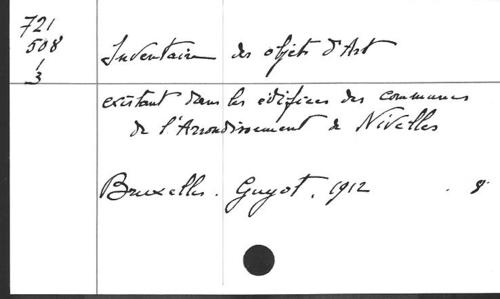 721
508
1
3
Inventaire des objets d'Art
existant dans les édifices des communes
de l'Arrondissement de Nivelles
Bruxelles. Guyot. 1912